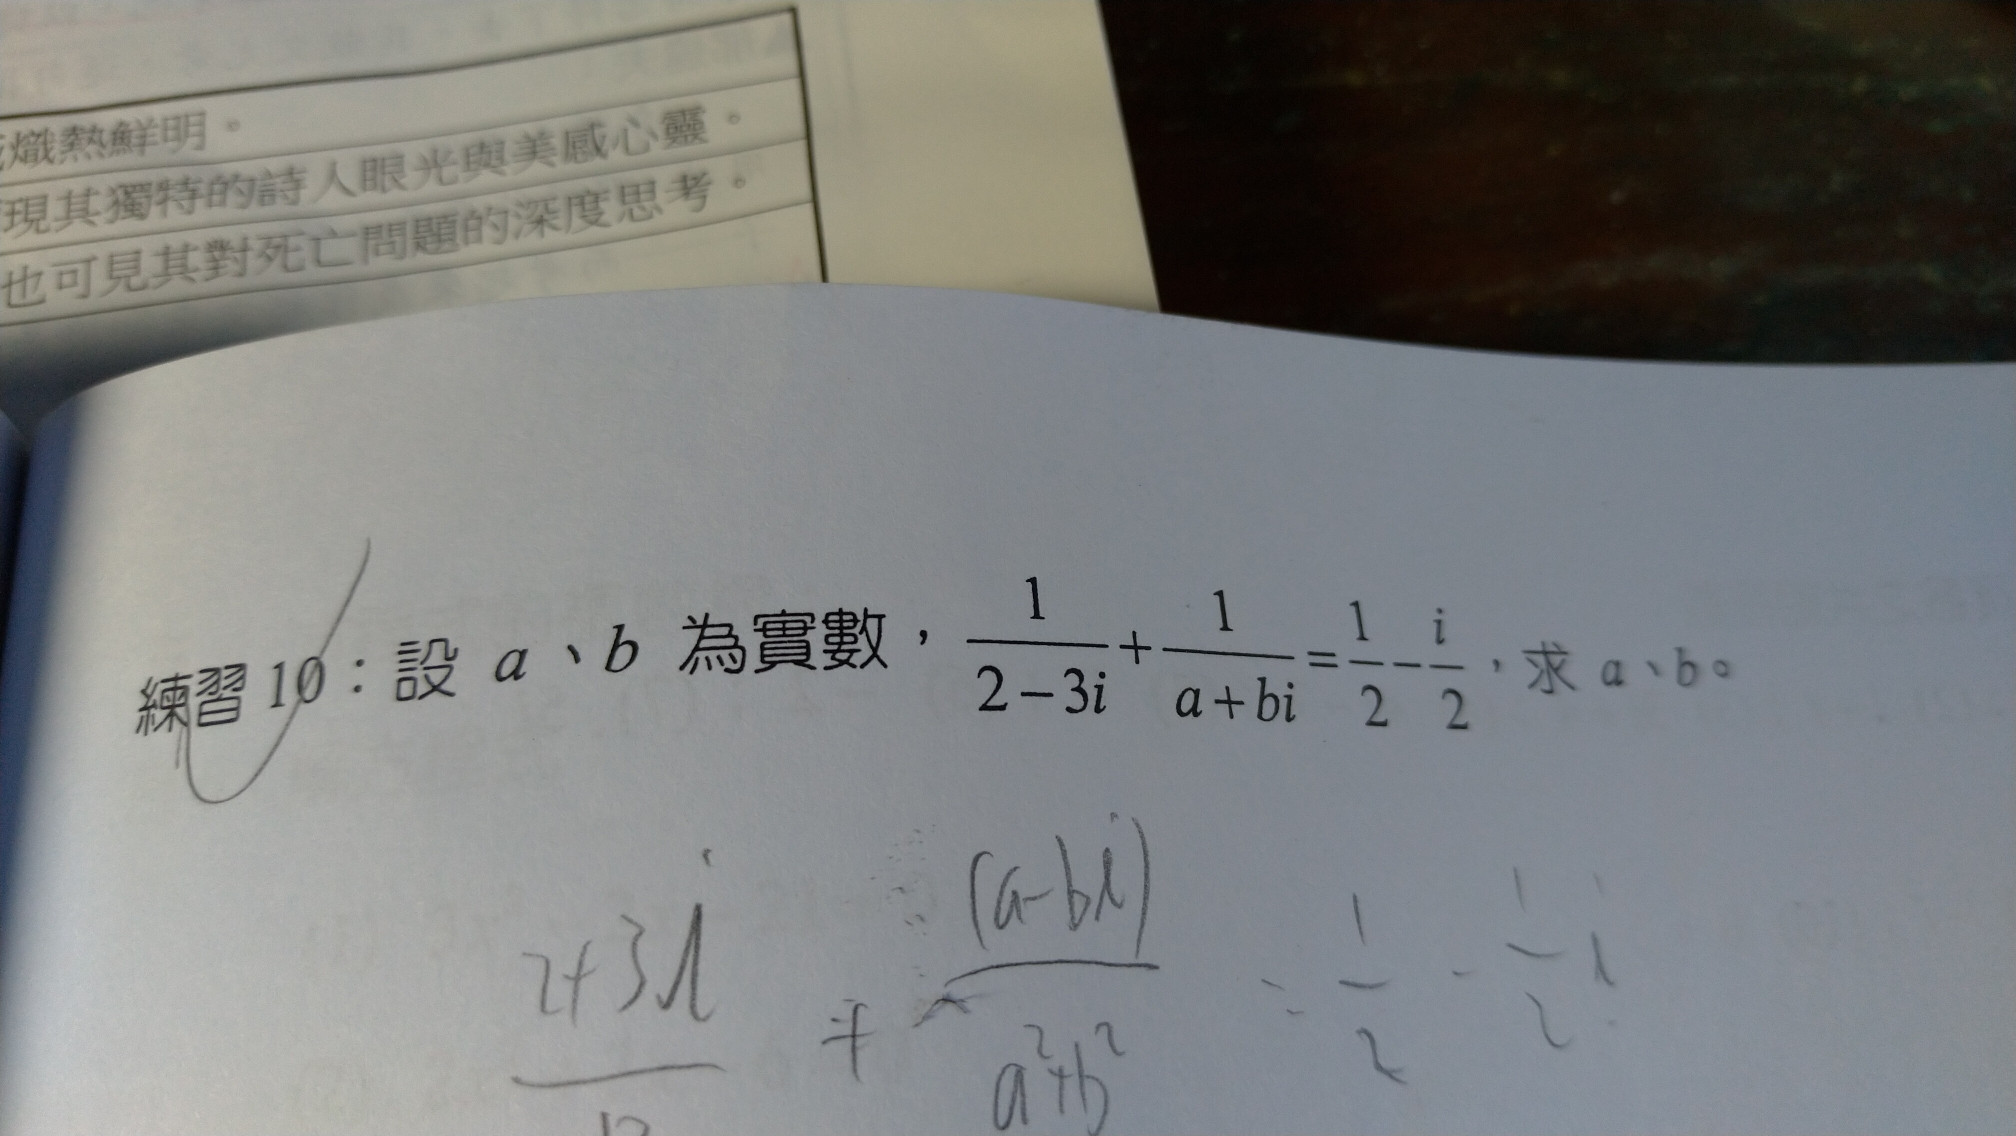 熾熱鮮明。
現其獨特的詩人眼光與美感心靈。
也可見其對死亡問題的深度思考。
練習 10：設 a、b 為實數，1/(2-3i) + 1/(a+bi) = 1/2 - i/2，求 a、b。
(2+3i)/13 + (a-bi)/(a²+b²) = 1/2 - 1/2 i